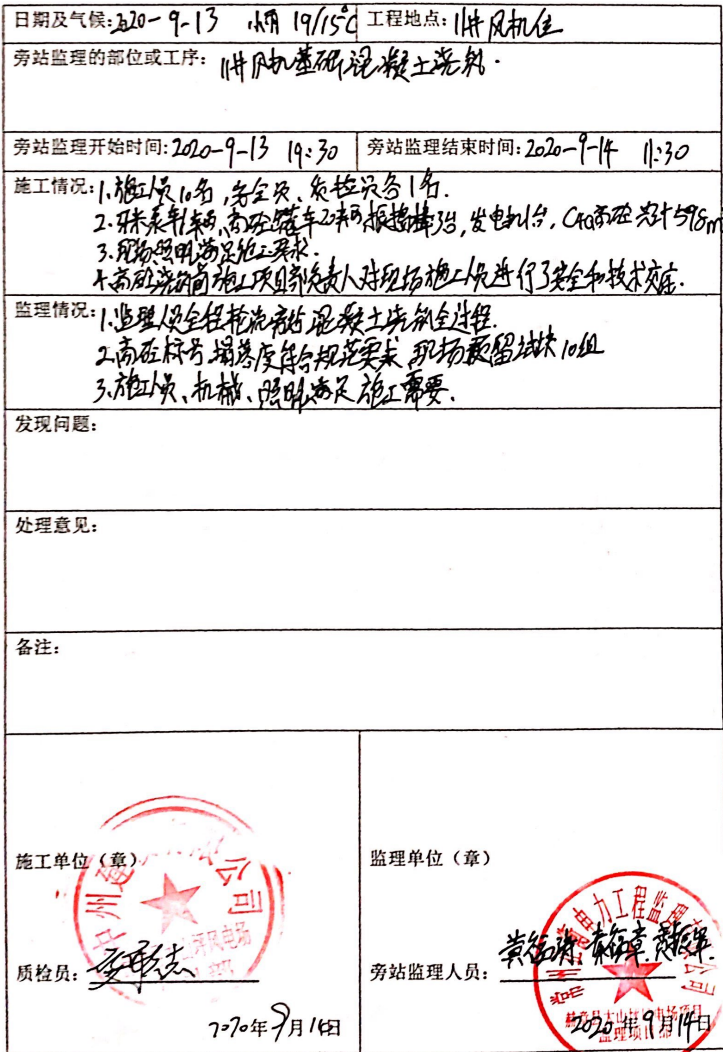 日期及气候:2020-9-13 小雨 19/15℃ 工程地点:11# 风机位
旁站监理的部位或工序:11#风机基础混凝土浇筑.
旁站监理开始时间:2020-9-13 19:30 旁站监理结束时间:2020-9-14 11:30
施工情况:1.施工人员10名,安全员、质检员各1名.
2. 泵车1辆,商砼罐车20辆,振捣棒3台,发电机1台,C40商砼共计598m³
3.现场照明满足施工要求.
4.商砼浇筑前施工项目部负责人对现场施工人员进行了安全和技术交底.
监理情况:1.监理人员全程轮流旁站混凝土浇筑全过程.
2.商砼标号、塌落度符合规范要求,现场预留试块10组
3.施工人员、机械、照明满足施工需要.
发现问题:
处理意见:
备注:
施工单位(章) 监理单位(章)
质检员: 旁站监理人员:
2020年9月14日 2020年9月14日